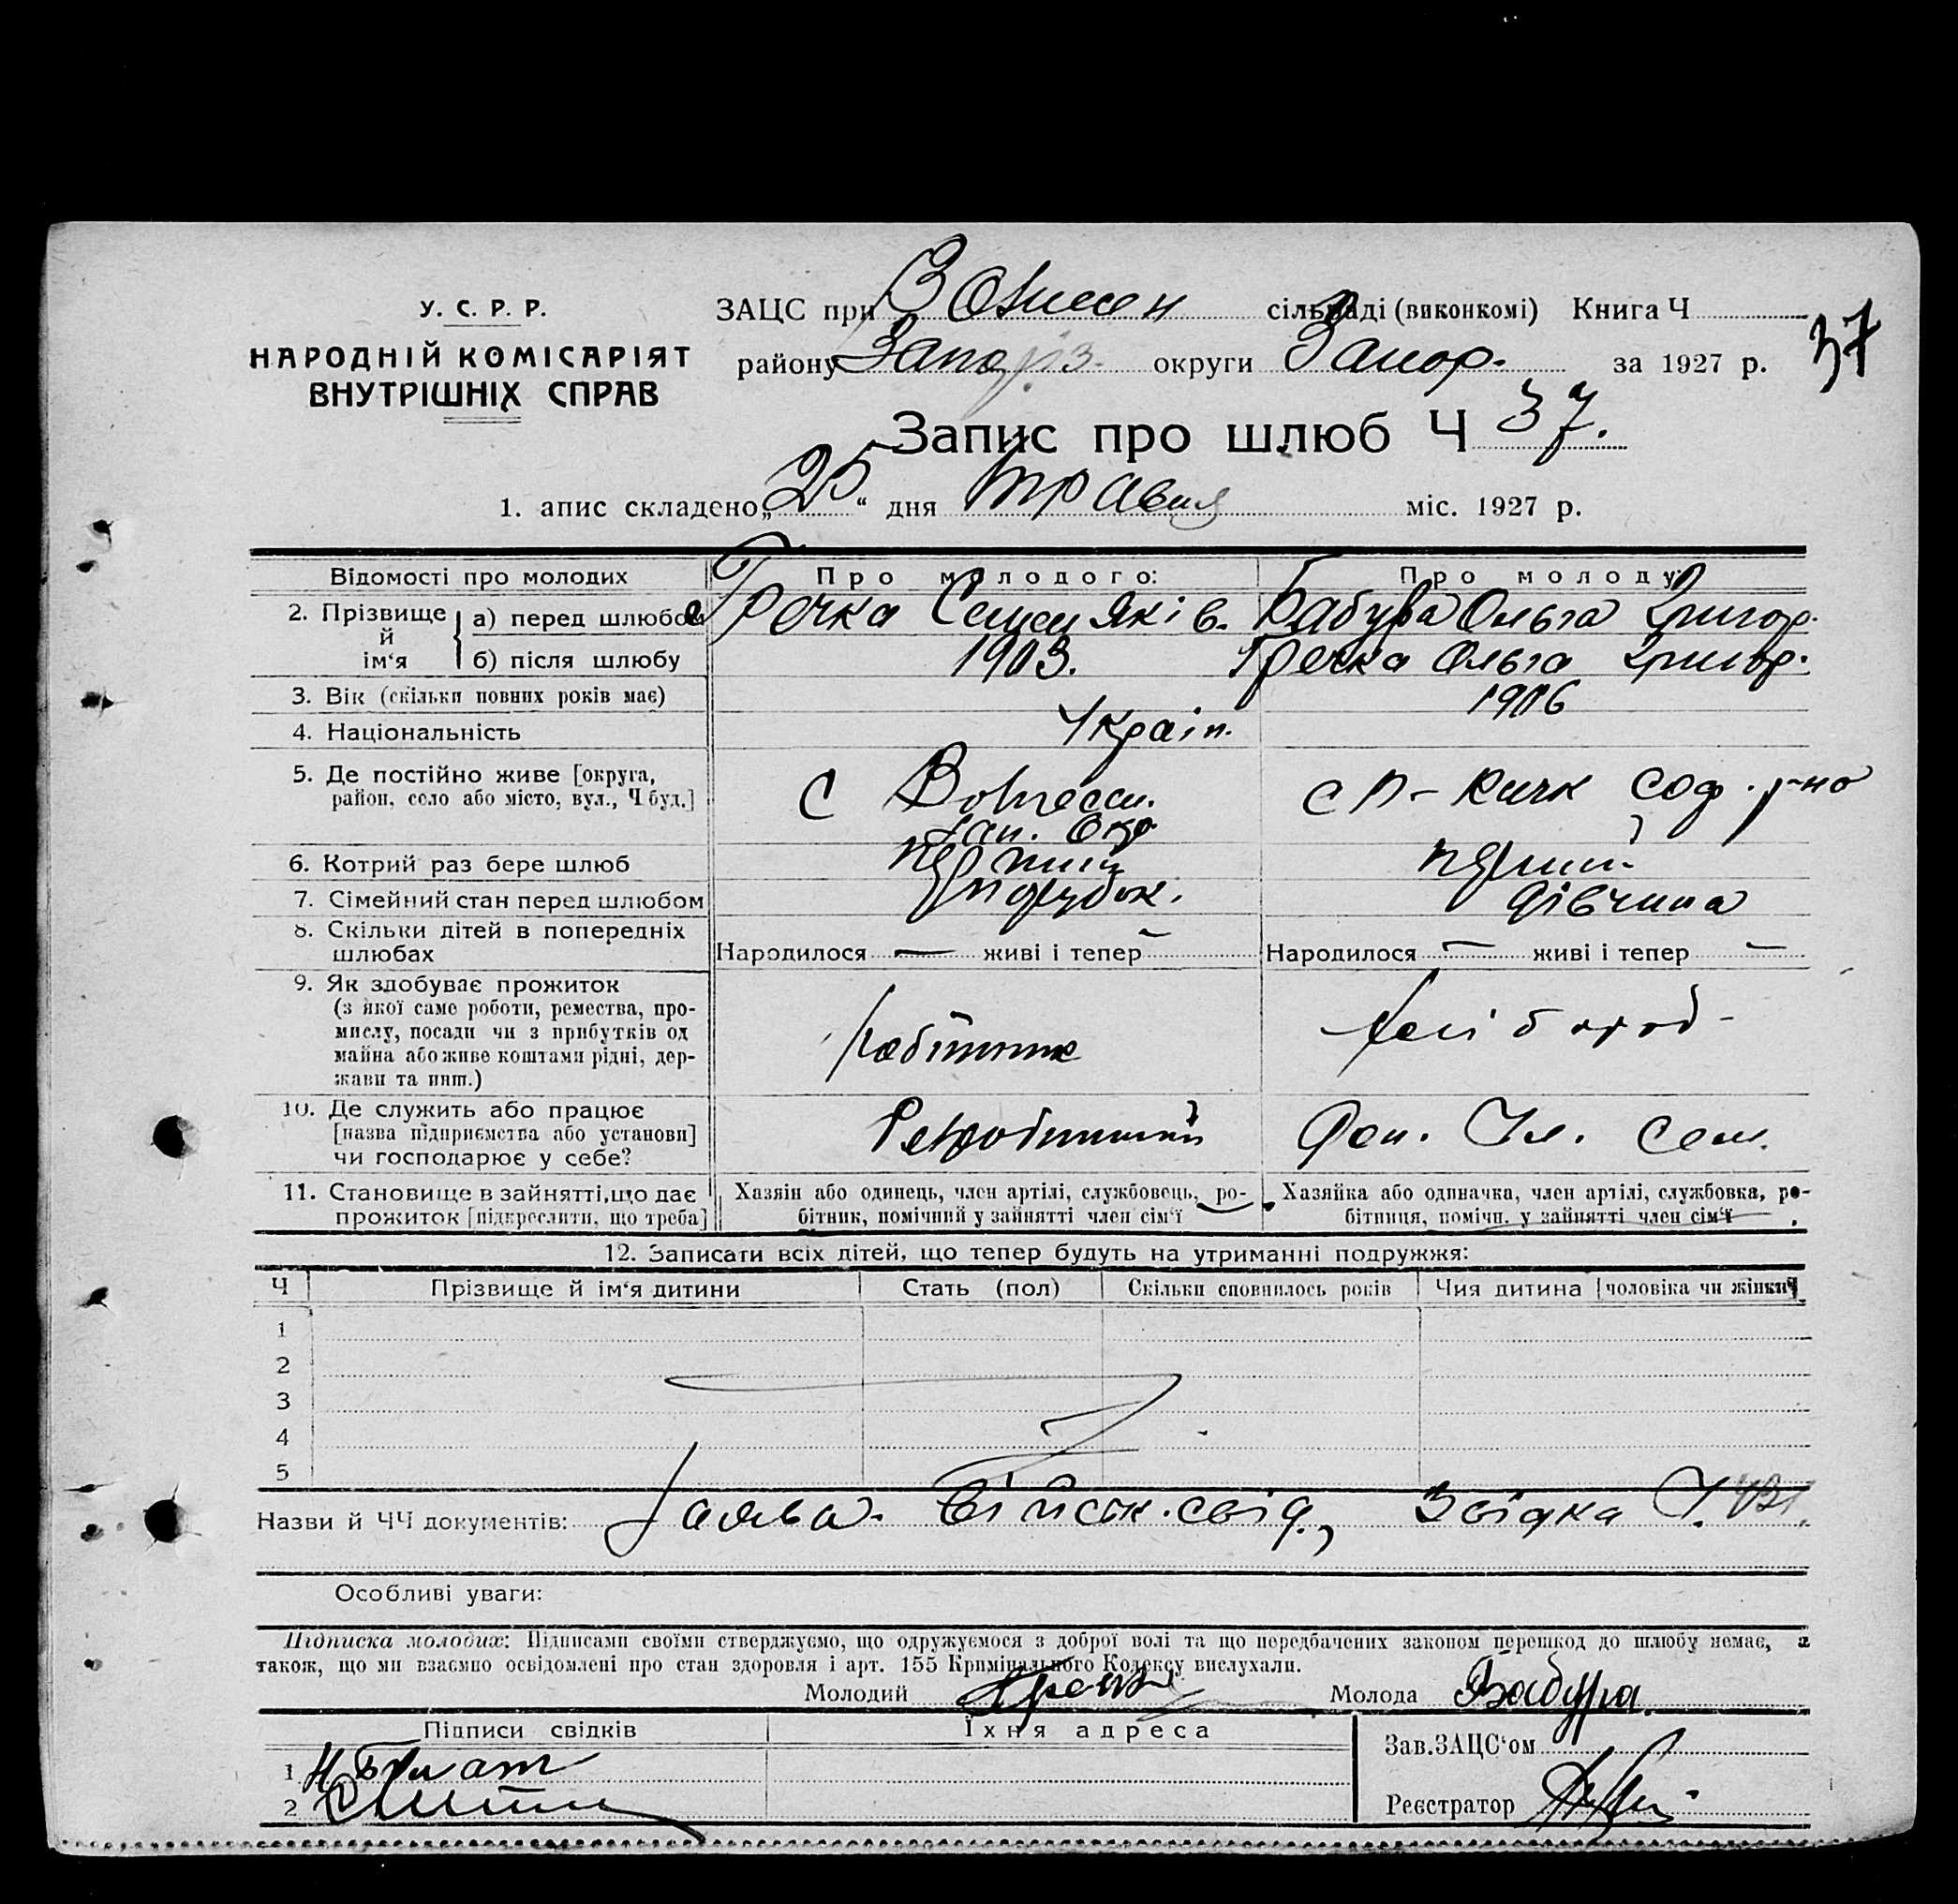 У. С. Р. Р.
НАРОДНІЙ КОМІСАРІЯТ
ВНУТРІШНІХ СПРАВ
ЗАЦС при сільраді (виконкомі) Книга Ч
району Запоріз. округи Запор. за 1927 р. 37
Запис про шлюб Ч 37.
1. апис складено „25“ дня травня міс. 1927 р.
Відомості про молодих Про молодого: Про молоду:
2. Прізвище й ім‘я
а) перед шлюбом Гречка Семен Яків. Бабура Ольга Григор.
б) після шлюбу 1903. Гречка Ольга Григор.
3. Вік (скільки повних років має) 1906
4. Національність Україн.
5. Де постійно живе [округа,
район, село або місто, вул., Ч буд.]
С Вознесен. с П-Кичк Соф. р-но
Зап. Окр
6. Котрий раз бере шлюб перший перший
7. Сімейний стан перед шлюбом парубок. дівчина
8. Скільки дітей в попередніх
шлюбах
Народилося — живі і тепер — Народилося — живі і тепер —
9. Як здобуває прожиток
(з якої саме роботи, ремества, про-
мислу, посади чи з прибутків од
майна або живе коштами рідні, дер-
жави та инш.)
Робітник
10. Де служить або працює
[назва підприємства або установи]
чи господарює у себе?
11. Становище в зайнятті, що дає
прожиток [підкреслити, що треба]
Хазяїн або одинець, член артілі, службовець, ро-
бітник, помічний у зайнятті член сім‘ї
Хазяйка або одиначка, член артілі, службовка, ро-
бітниця, помічн. у зайнятті член сім‘ї
12. Записати всіх дітей, що тепер будуть на утриманні подружжя:
Ч Прізвище й ім‘я дитини Стать (пол) Скільки сповнилось років Чия дитина [чоловіка чи жінки]
1
2
3
4
5
Назви й ЧЧ документів: Заява. Військ. свід., Звідка Ч.
Особливі уваги:
Підписка молодих: Підписами своїми стверджуємо, що одружуємося з доброї волі та що передбачених законом перешкод до шлюбу немає, а
також, що ми взаємно освідомлені про стан здоровля і арт. 155 Кримінального Кодексу вислухали.
Молодий Гречка Молода Бабура.
Підписи свідків Їхня адреса
Зав. ЗАЦС‘ом
1
2
Реєстратор